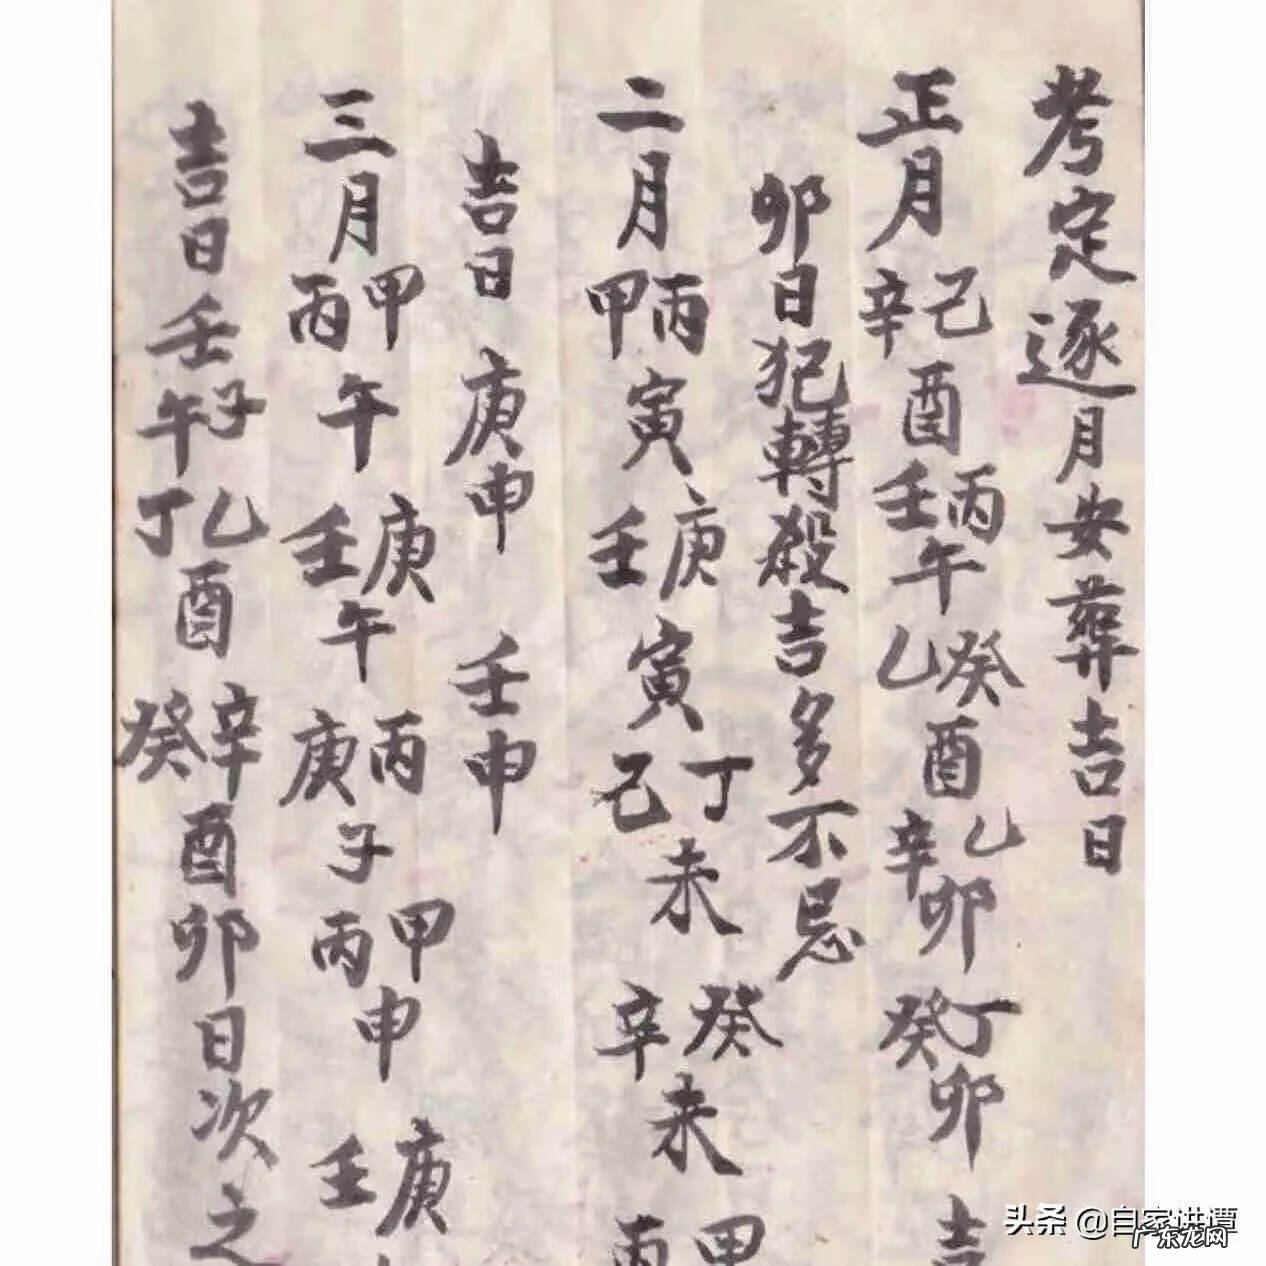 考定逐月安葬吉日
正月 己辛酉 丙壬午 癸乙酉 乙辛卯 丁癸卯 吉
卯日犯轉殺吉多不忌
二月 丙甲寅 庚壬寅 丁己未 癸辛未 甲丙
吉日 庚申 壬申
三月 甲丙午 庚壬午 丙庚子 甲丙申 庚壬
吉日 壬子午 乙丁酉 辛癸酉 卯日次之
头条 @自家讲谭
广东龙网